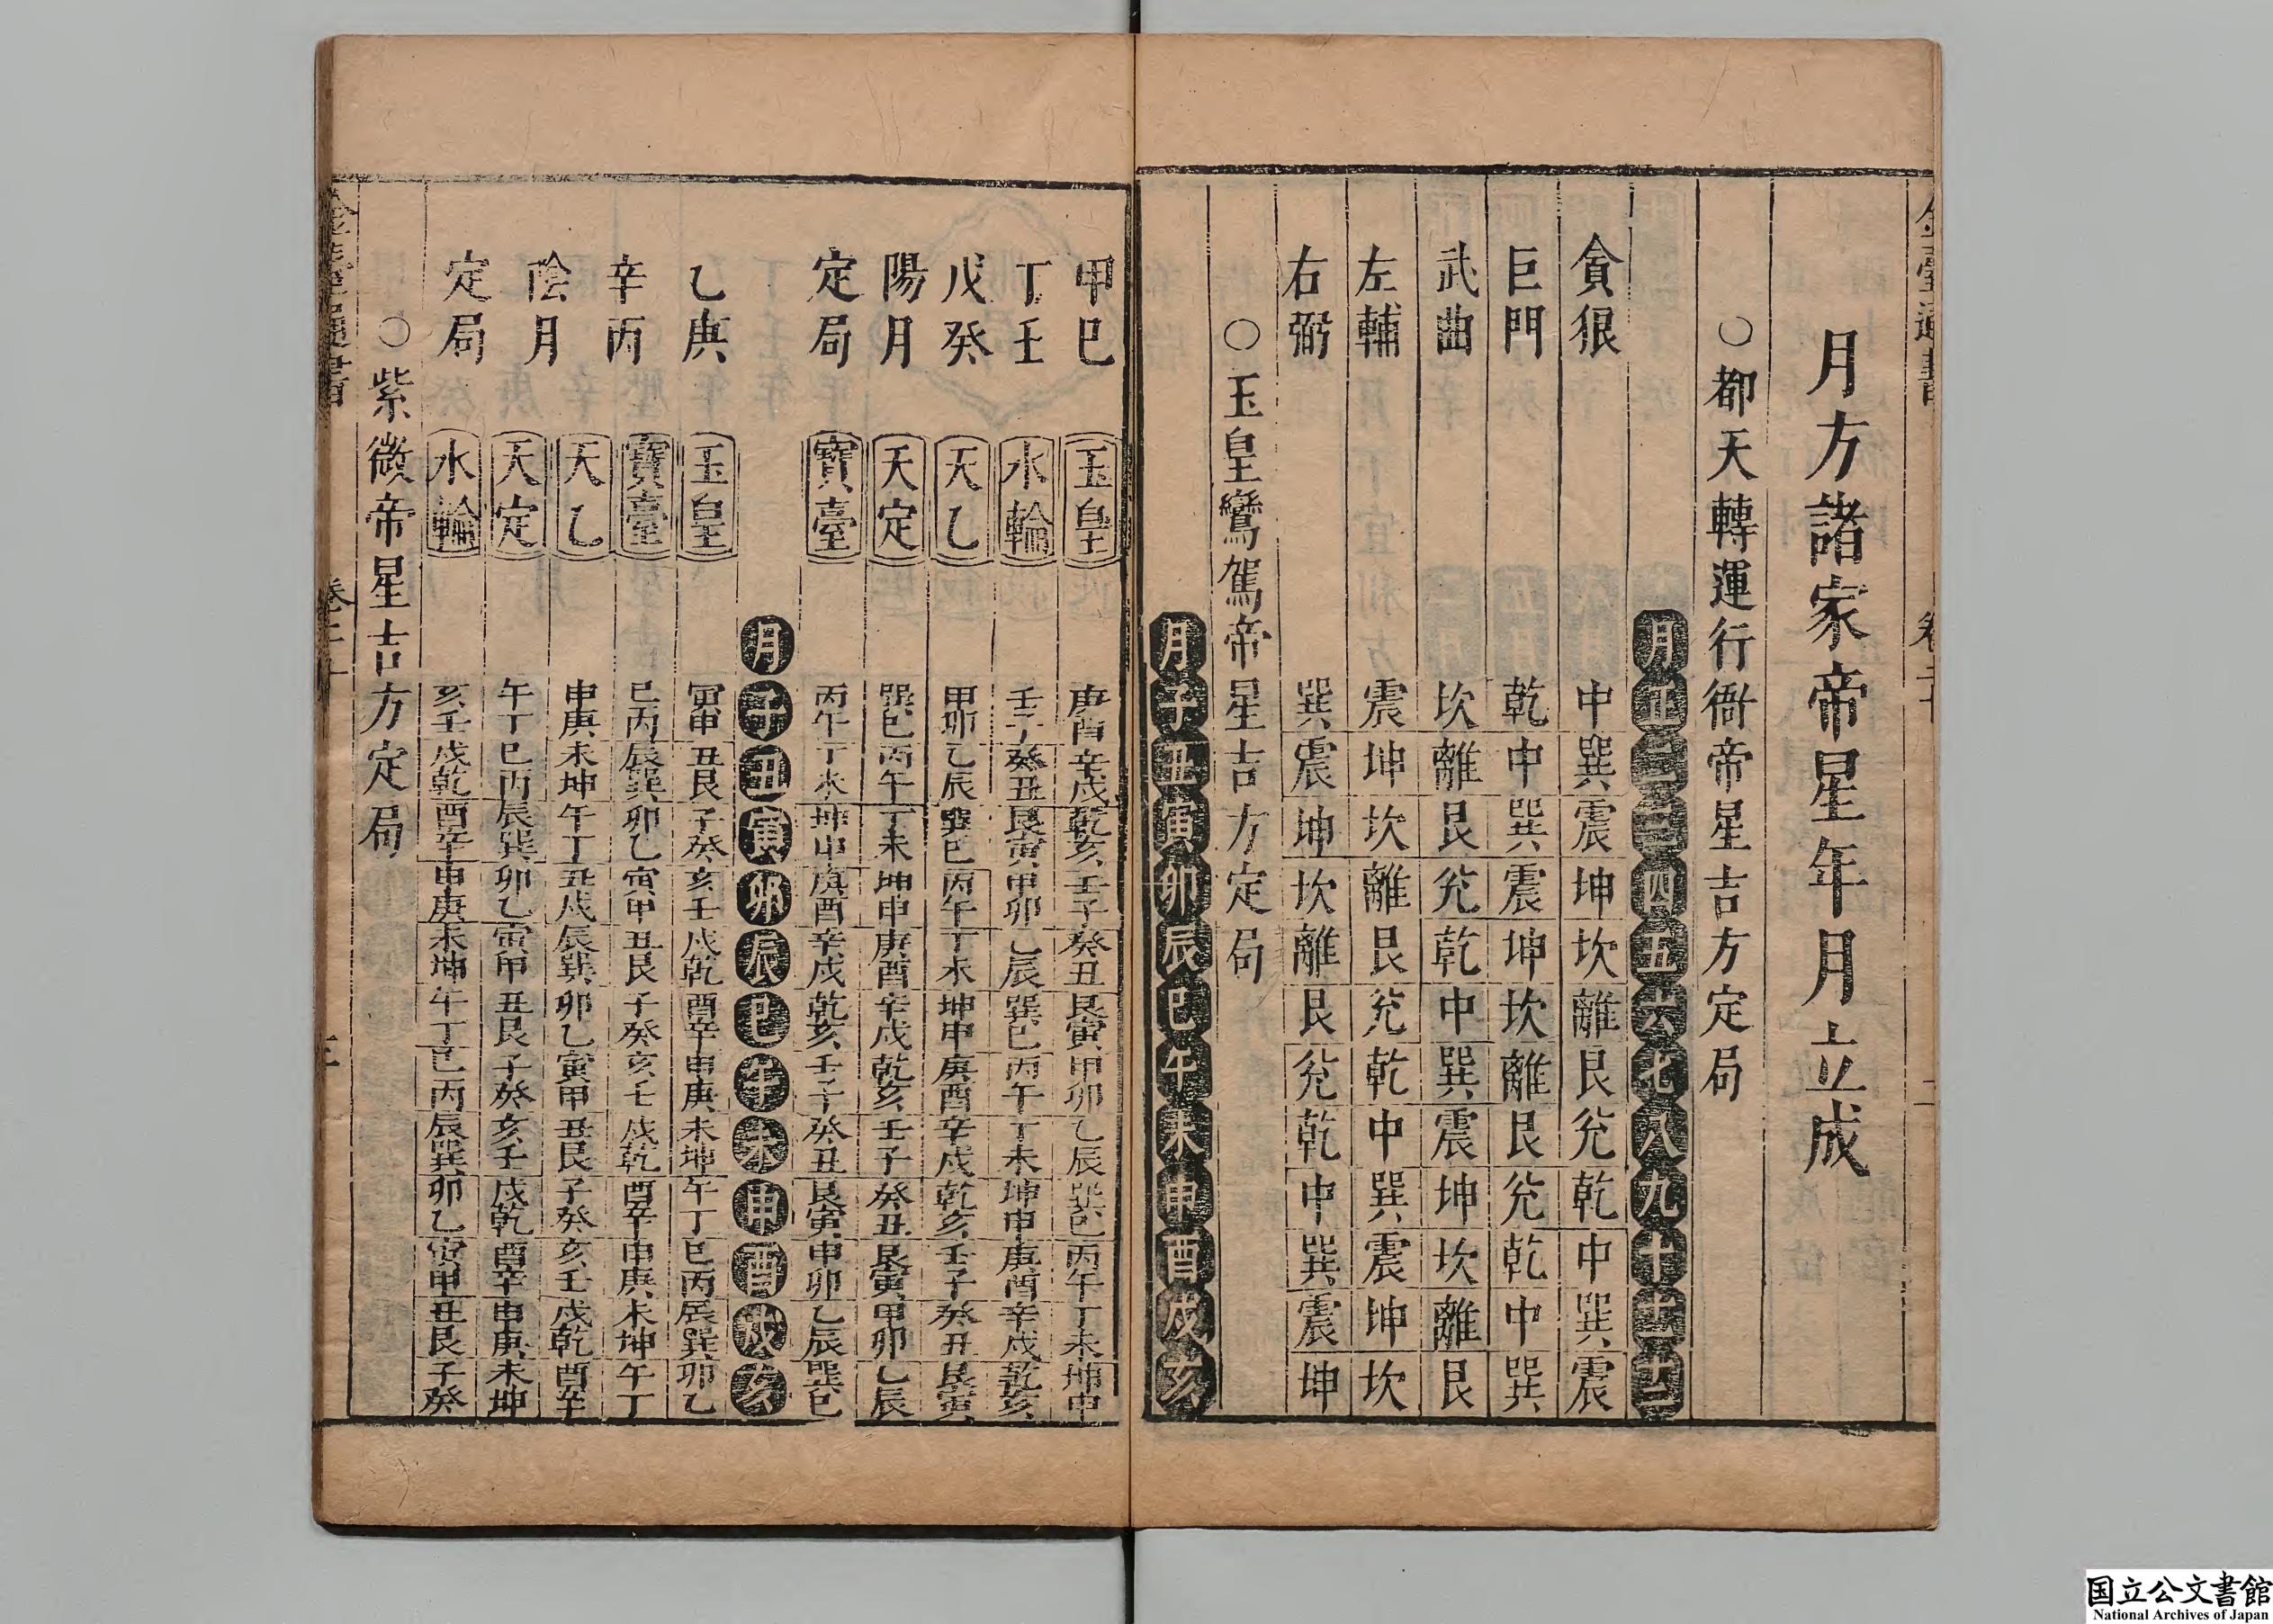 月方諸家帝星年月立成
○都天轉運行衙帝星吉方定局
月正二三四五六七八九十十一十二
貪狠 中巽震坤坎離艮兊乾中巽震
巨門 乾中巽震坤坎離艮兊乾中巽
武曲 坎離艮兊乾中巽震坤坎離艮
左輔 震坤坎離艮兊乾中巽震坤坎
右弼 巽震坤坎離艮兊乾中巽震坤
○玉皇鸞駕帝星吉方定局
月子丑寅卯辰巳午未申酉戌亥
甲巳 玉皇 庚酉辛戌乾亥壬子癸丑艮寅甲卯乙辰巽巳丙午丁未坤申
丁壬 水輪 壬子癸丑艮寅甲卯乙辰巽巳丙午丁未坤申庚酉辛戌乾亥
戊癸 天乙 甲卯乙辰巽巳丙午丁未坤申庚酉辛戌乾亥壬子癸丑艮寅
陽月 天定 巽巳丙午丁未坤申庚酉辛戌乾亥壬子癸丑艮寅甲卯乙辰
定局 寶臺 丙午丁未坤申庚酉辛戌乾亥壬子癸丑艮寅申卯乙辰巽巳
月子丑寅卯辰巳午未申酉戌亥
乙庚 玉皇 寅甲丑艮子癸亥壬戌乾酉辛申庚未坤午丁巳丙辰巽卯乙
辛丙 寶臺 巳丙辰巽卯乙寅甲丑艮子癸亥壬戌乾酉辛申庚未坤午丁
陰月 天乙 申庚未坤午丁丑戌辰巽卯乙寅甲丑艮子癸亥壬戌乾酉辛
定局 天定 午丁巳丙辰巽卯乙寅甲丑艮子癸亥壬戌乾酉辛申庚未坤
水輪 亥壬戌乾酉辛申庚未坤午丁巳丙辰巽卯乙寅甲丑艮子癸
○紫微帝星吉方定局
国立公文書館
National Archives of Japan